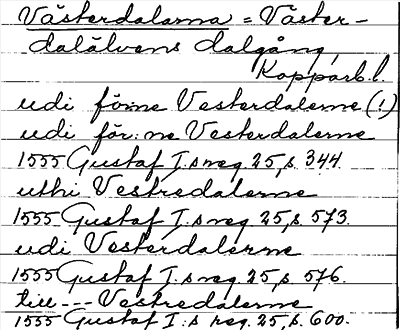 Västerdalarna = Väster-
dalälvens dalgång,
Kopparb.l.
udi förne Vesterdalerne (!)
udi för:ne Vesterdalerne
1555 Gustaf I:s reg. 25, s. 344.
uthi Vestredalerne
1555 Gustaf I:s reg. 25, s. 573.
udi Vesterdalerne
1555 Gustaf I:s reg. 25, s. 576.
till --- Vestredalerne
1555 Gustaf I:s reg. 25, s. 600.